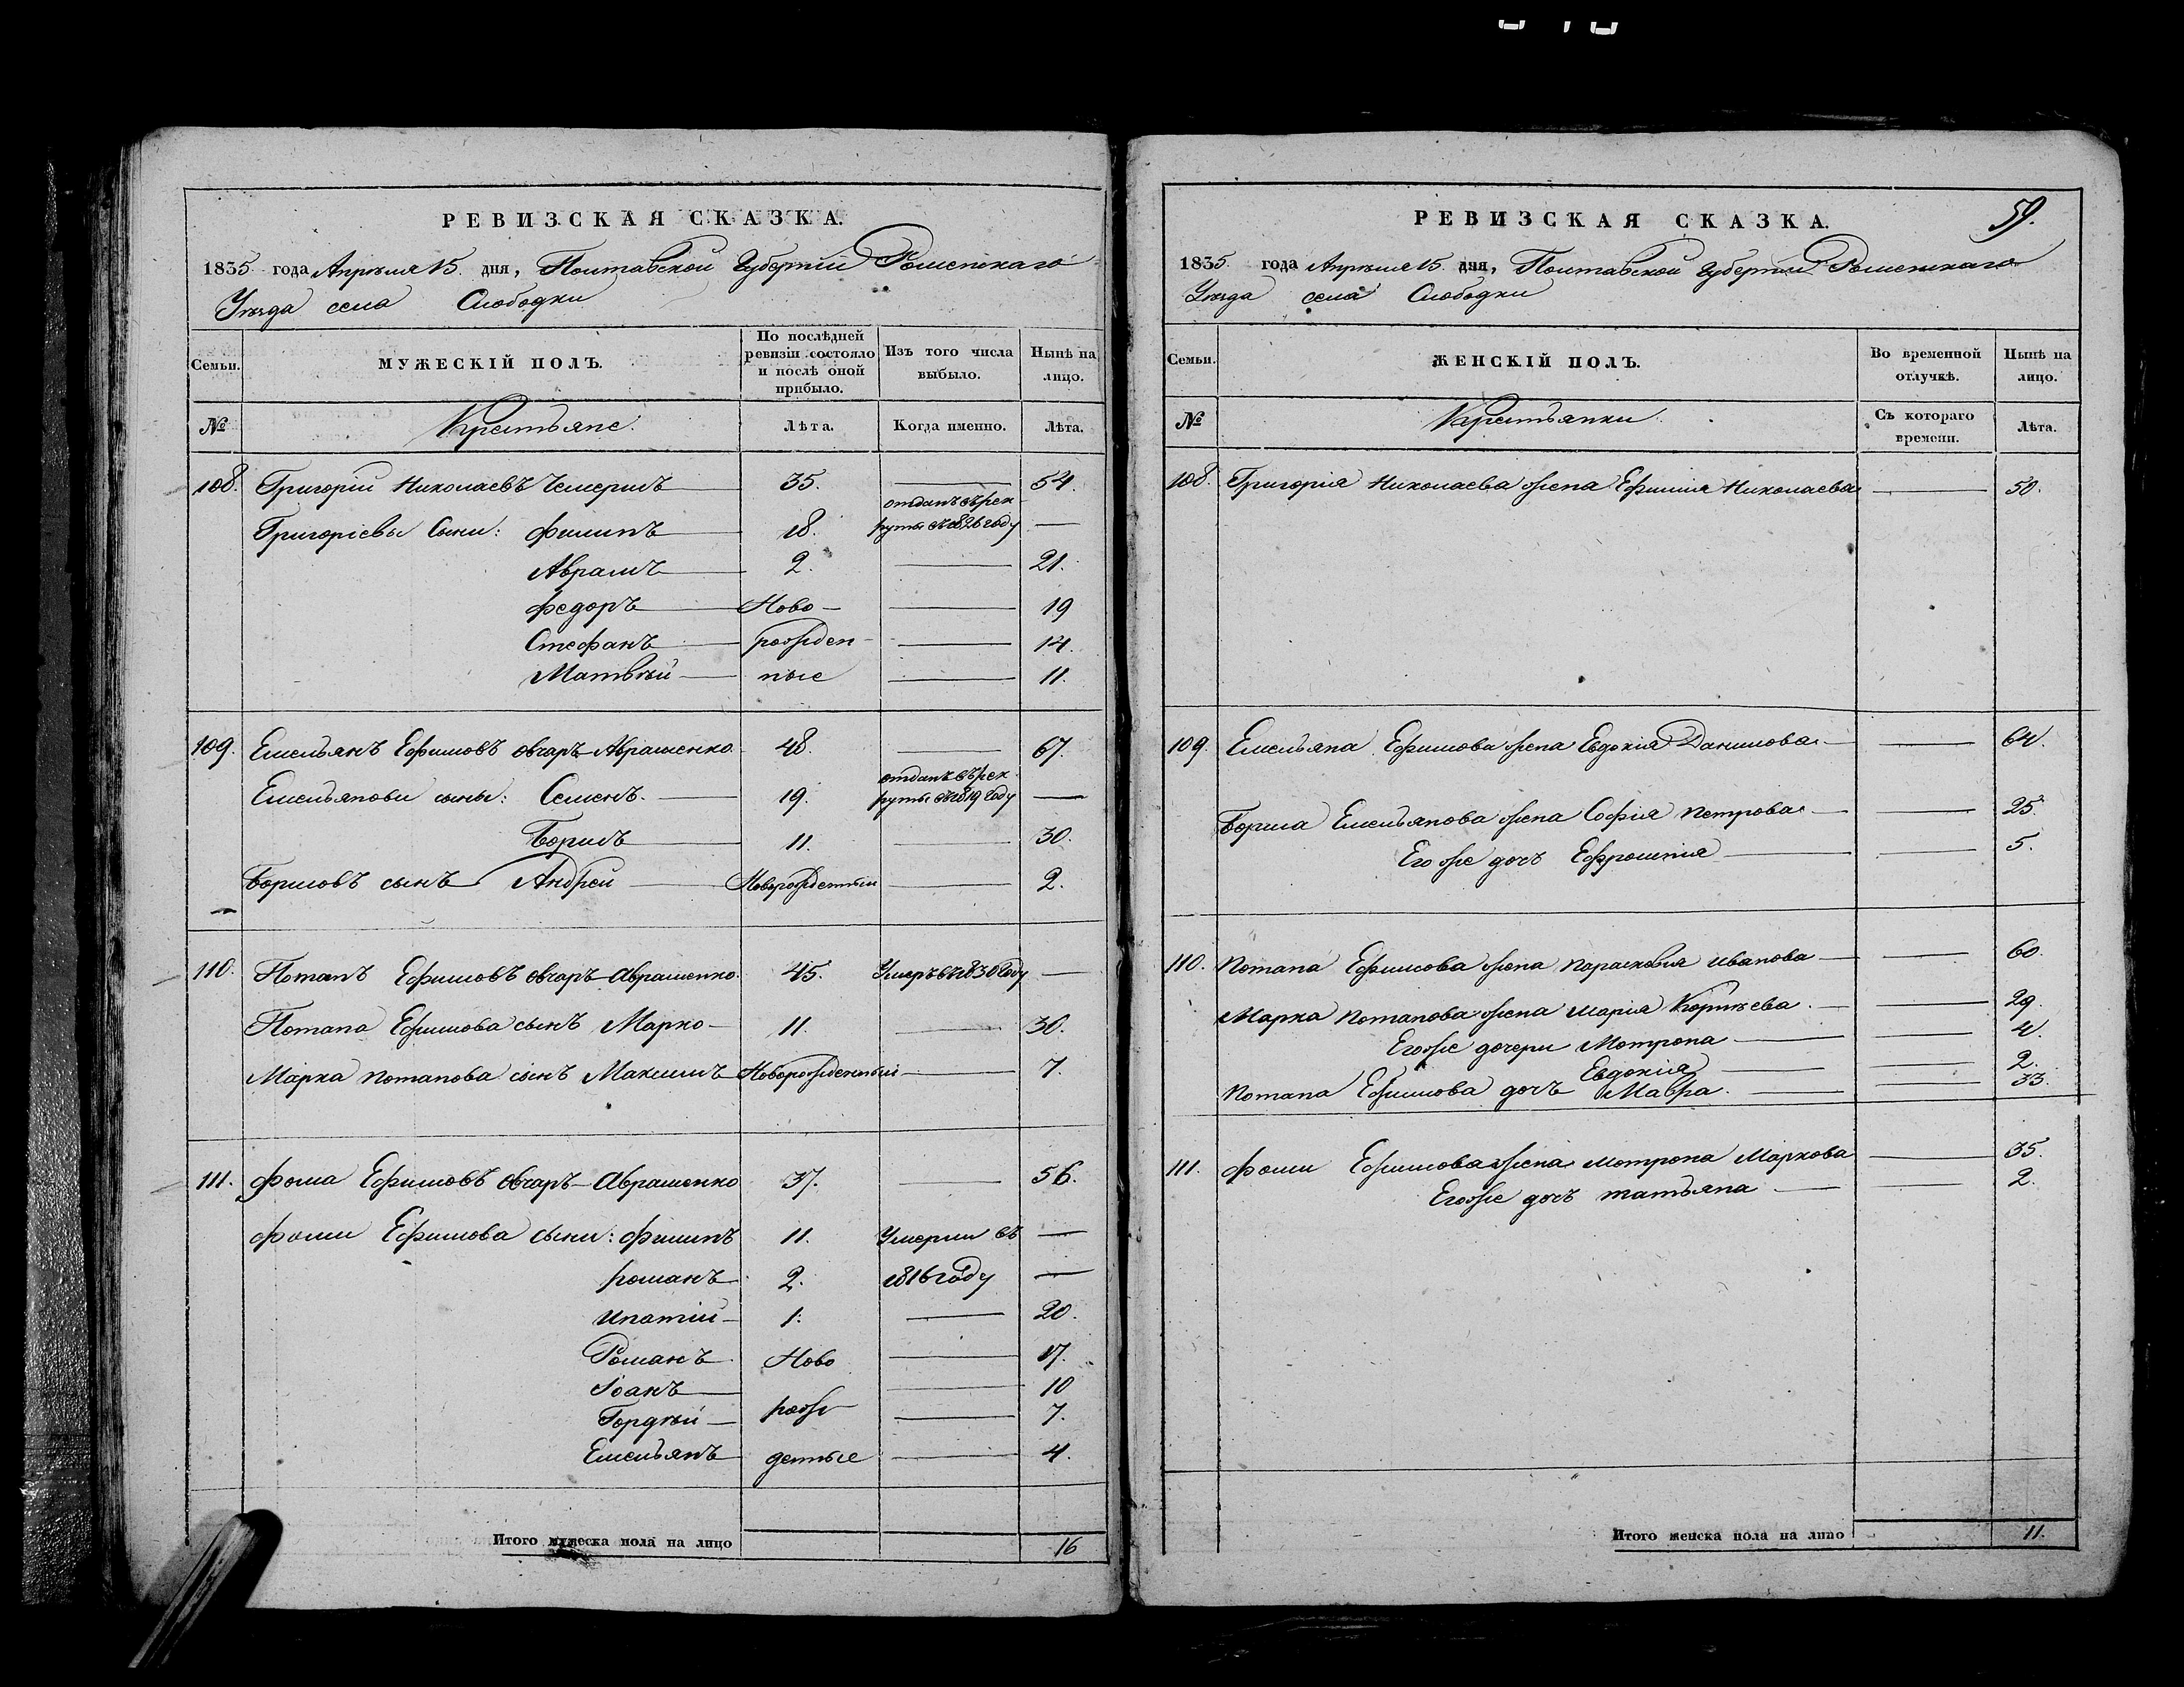 РЕВИЗСКАЯ СКАЗКА.
1835 года Апрѣля 15 дня, Полтавской Губерніи Роменскаго
Уѣзда села Слободки
Семьи. МУЖЕСКІЙ ПОЛЪ. По послѣдней ревизіи состояло и послѣ оной прибыло. Изъ того числа выбыло. Нынѣ на лицо.
№ Крестьяне. Лѣта. Когда именно. Лѣта.
108. Григорій Николаевъ Чемерисъ 35. — 54.
Григоріевы Сыни: филипъ 18. отданъ въ рекруты въ 1826 году —
Аврамъ 2. — 21.
федоръ Ново- — 19
Стефанъ рожден- — 14.
Матвѣй ные — 11.
109. Емельянъ Ефимовъ Овчаръ-Аврашенко 48. — 67.
Емельянови сыны: Семенъ. 19. отданъ въ рекруты въ 1819 году —
Борисъ 11. — 30.
Борисовъ сынъ Андрей Новорожденный — 2.
110. Потапъ Ефимовъ Овчаръ-Аврашенко. 45. Умеръ въ 1830 году —
Потапа Ефимова сынъ Марко 11. — 30.
Марка потапова сынъ Максимъ Новорожденный — 7.
111. фома Ефимовъ Овчаръ-Аврашенко 37. — 56.
фоми Ефимова сыни: филипъ 11. Умерли въ —
романъ 2. 1816 году —
ипатій 1. — 20.
Романъ Ново — 17.
Іоанъ — 10
Гордѣй рож — 7.
Емельянъ денные — 4.
Итого мужеска пола на лицо 16
59.
РЕВИЗСКАЯ СКАЗКА.
1835 года Апрѣля 15. дня, Полтавской Губерніи Роменскаго
Уѣзда села Слободки
Семьи. ЖЕНСКІЙ ПОЛЪ. Во временной отлучкѣ. Нынѣ на лицо.
№ Крестьянки. Съ котораго времени. Лѣта.
108. Григорія Николаева жена Ефимія Николаева — 50.
109. Емельяна Ефимова жена Евдокія Данилова —
Бориса Емельянова жена Софія петрова — 25.
Его же дочь Ефросинія — 5.
110. потапа Ефимова жена параскевія иванова — 60.
Марка потапова жена марія Корнѣева. — 29.
Его же дочери Мотрона — 4.
Евдокія — 2.
потапа Ефимова дочь Мавра. — 33.
111. фоми Ефимова жена мотрона Маркова — 35.
Его же дочь татьяна — 2.
Итого женска пола на лицо 11.